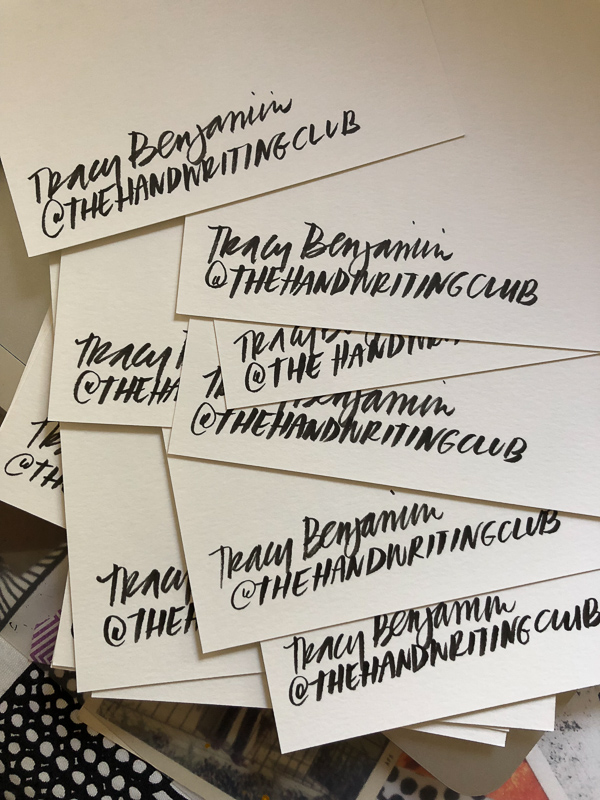 Tracy Benjamin
@THEHANDWRITINGCLUB
Tracy Benjamin
@THEHANDWRITINGCLUB
Tracy
@THEHA
Tracy Be
@THE HANDWRI
Benjamin
@THEHANDWRITINGCLUB
@THE
Tracy Benjamin
@THEHANDWRITINGCLUB
Tracy
@THEH
Tracy Benjamin
@THEHANDWRITINGCLUB